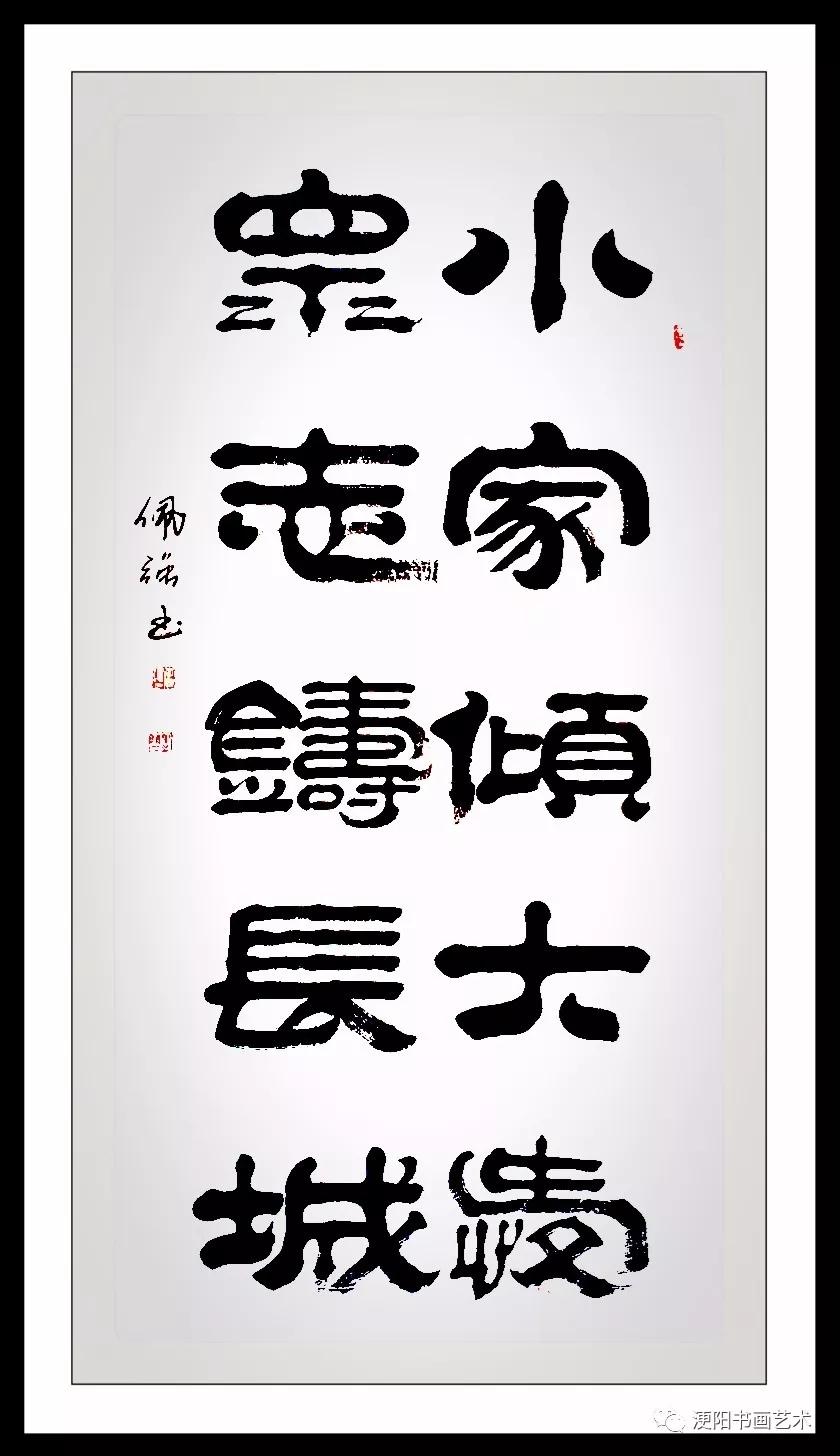 小家傾大愛
眾志鑄長城
佩强书
梗阳书画艺术